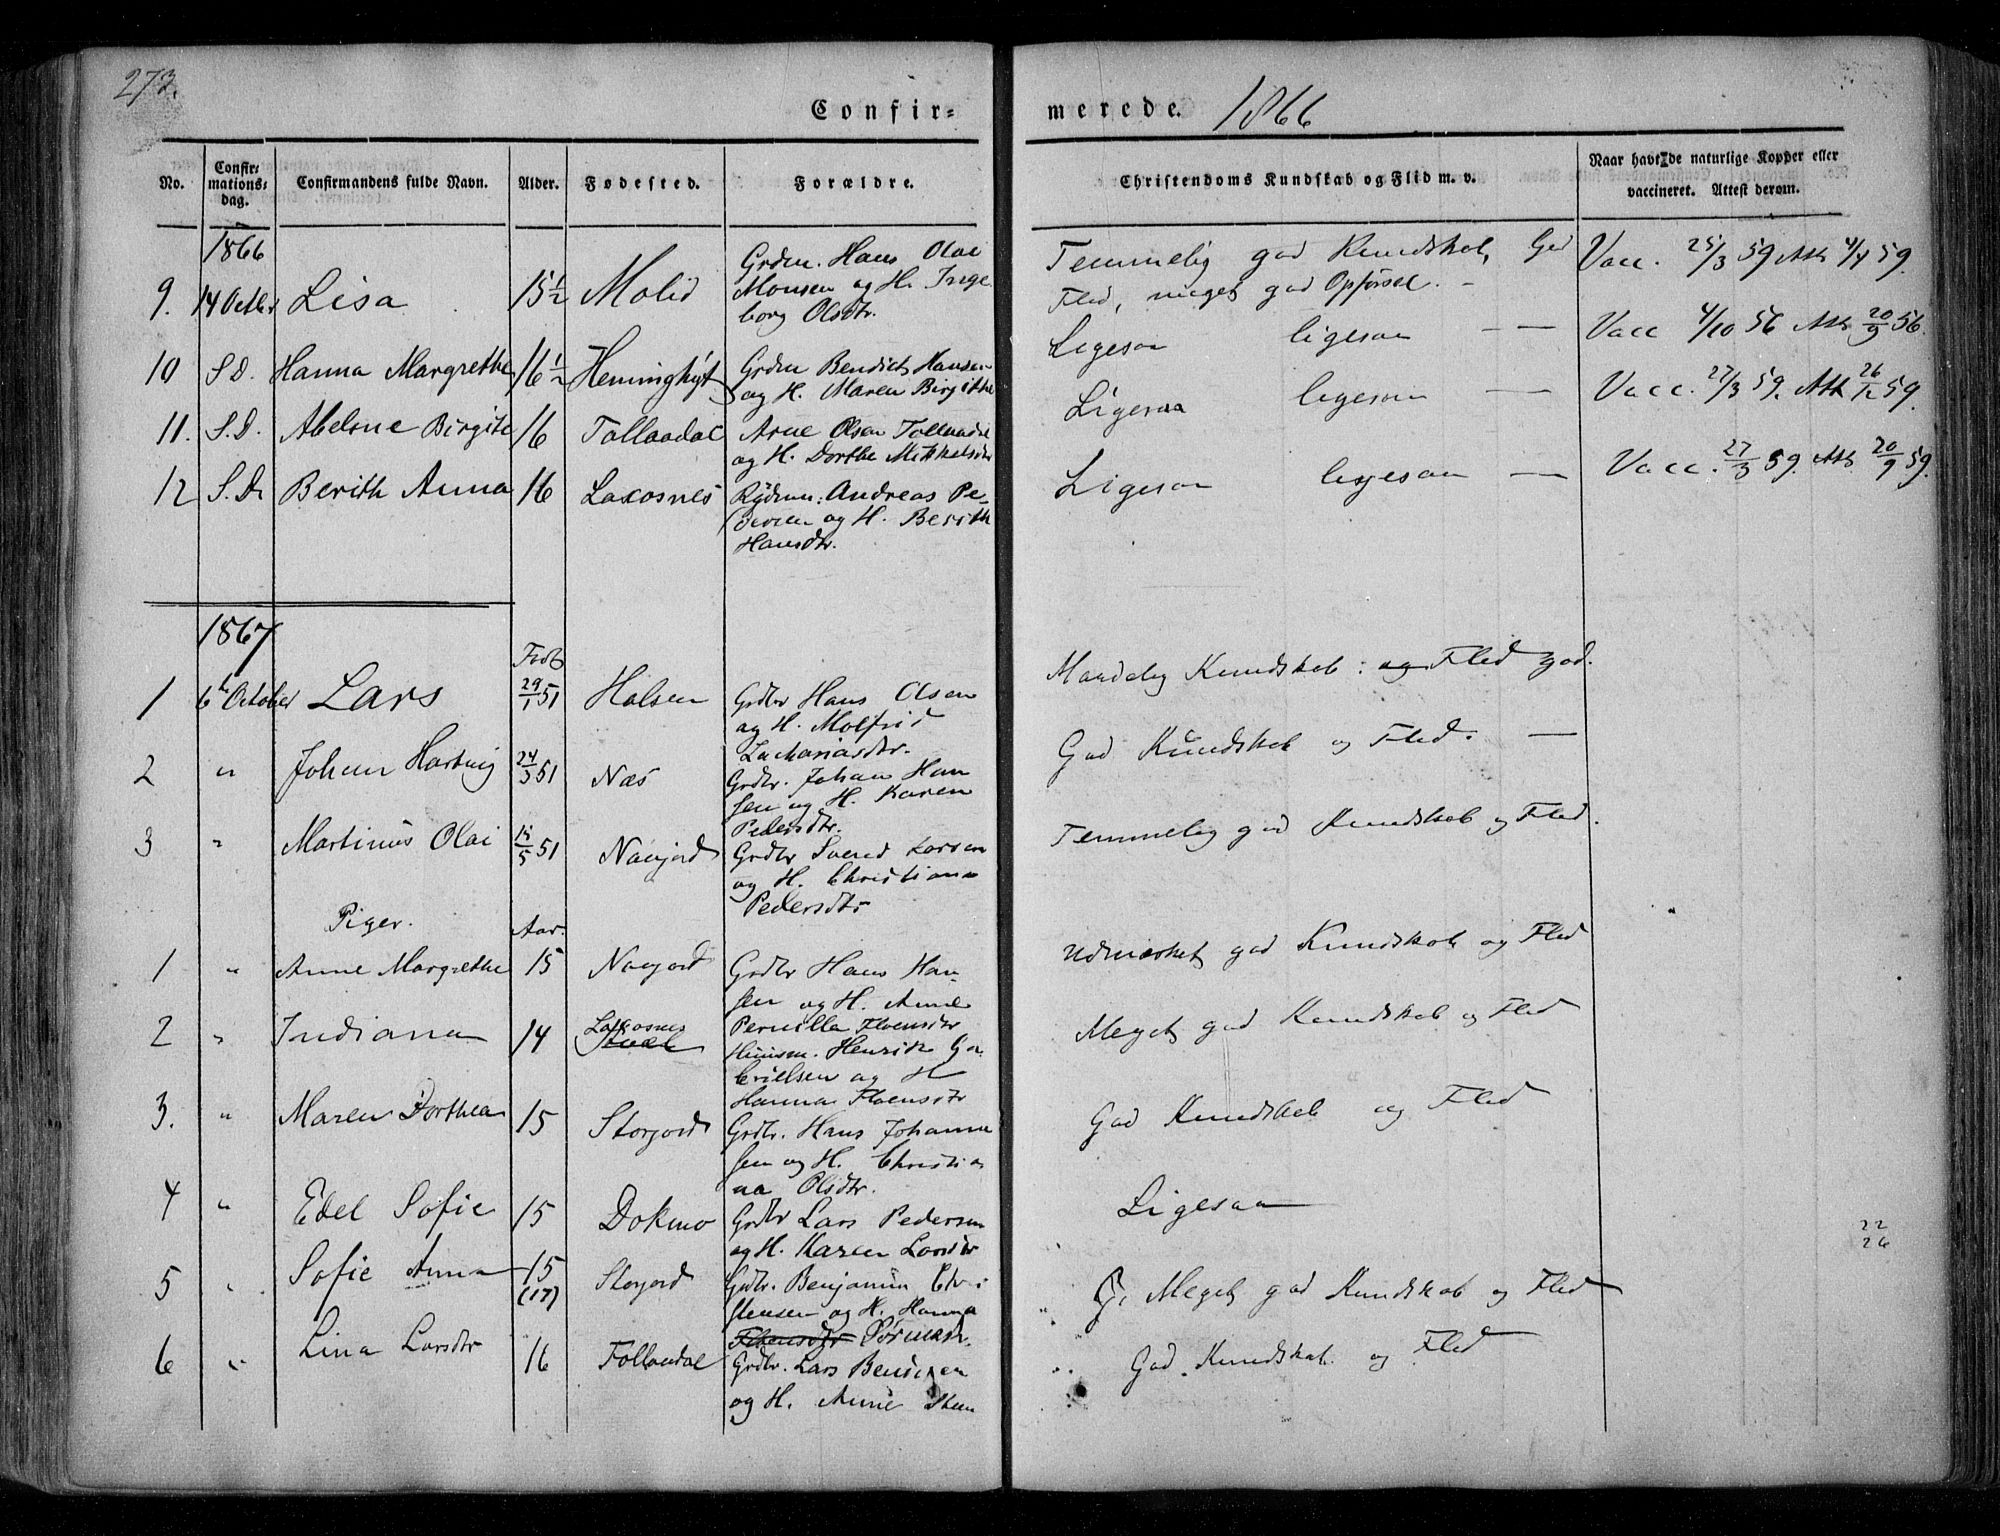 273.
Confir=
merede. 1866
No.
Confir-
mations-
dag.
Confirmandens fulde Navn.
Alder.
Fødested.
Forældre.
Christendoms Kundskab og Flid m. v.
Naar havt de naturlige Kopper eller
vaccineret. Attest derom.
1866
9. 14 Octbr Lisa 15 1/2 Molid
Grdm. Hans Olai
Monsen og H. Inge
borg Olsdtr.
Temmelig god Kundskab, God
Flid, meget god Opførsel. -
Vacc. 25/3 59 Att 4/4 59.
10 S.D. Hanna Margrethe 16 1/2 Heminghyt
Grdm Bendict Hansen
og H. Maren Birgitte
Ligesaa ligesaa — —
Vacc 4/10 56 Att 20/9 56.
11. S.D. Abelone Birgite 16 Tollaadal
Arne Olsen Tollaadal
og H. Dorthe Mikkelsdtr
Ligesaa ligesaa — —
Vacc. 27/3 59. Att 26/12 59.
12 S.D. Berith Anna 16 Laxosnes
Rydm: Andreas Pe-
dersen og H. Berith
Hansdtr.
Ligesaa ligesaa —
Vacc. 27/3 59. Att. 20/9 59.
1867
Født
1 6te October Lars 29/1 51 Holsen
Grdbr Hans Olsen
og H. Molfrid
Zachariasdtr.
Maadelig Kundskab: og Flid god.
2 " Johan Hartvig 24/3 51 Næs
Grdbr. Johan Han
sen og H. Karen
Pedersdtr.
God Kundskab og Flid. —
3 " Martinus Olai 14/5 51 Navjord
Grdbr Svend Larsen
og H. Christiana
Pedersdtr
Temmelig god Kundskab og Flid.
Piger. Aar.
1 " Anne Margrethe 15 Navjord
Grdbr Hans Han-
sen og H. Anne
Pernilla Floensdtr
Udmærket god Kundskab og Flid
2 " Indiana 14 Laxosnes
Huusm. Henrik Ga-
brielsen og H
Hanna Floensdtr
Meget god Kundskab og Flid
3. " Maren Dorthea 15 Storjord
Grdbr. Hans Johanne
sen og H. Christia
na Olsdtr.
God Kundskab og Flid
4 " Edel Sofie 15 Dokmo
Grdbr Lars Pedersen
og H. Karen Larsdtr
Ligesaa
22
26
5 " Sofie Anna 15
(17) Storjord
Grdbr. Benjamin Chri
stensen og H. Hanna
Floensdtr Pörman.
Meget god Kundskab og Flid
6 " Lina Larsdtr 16 Tollaadal
Grdbr. Lars Bendixen
og H. Anne Sten
God Kundskab og Flid